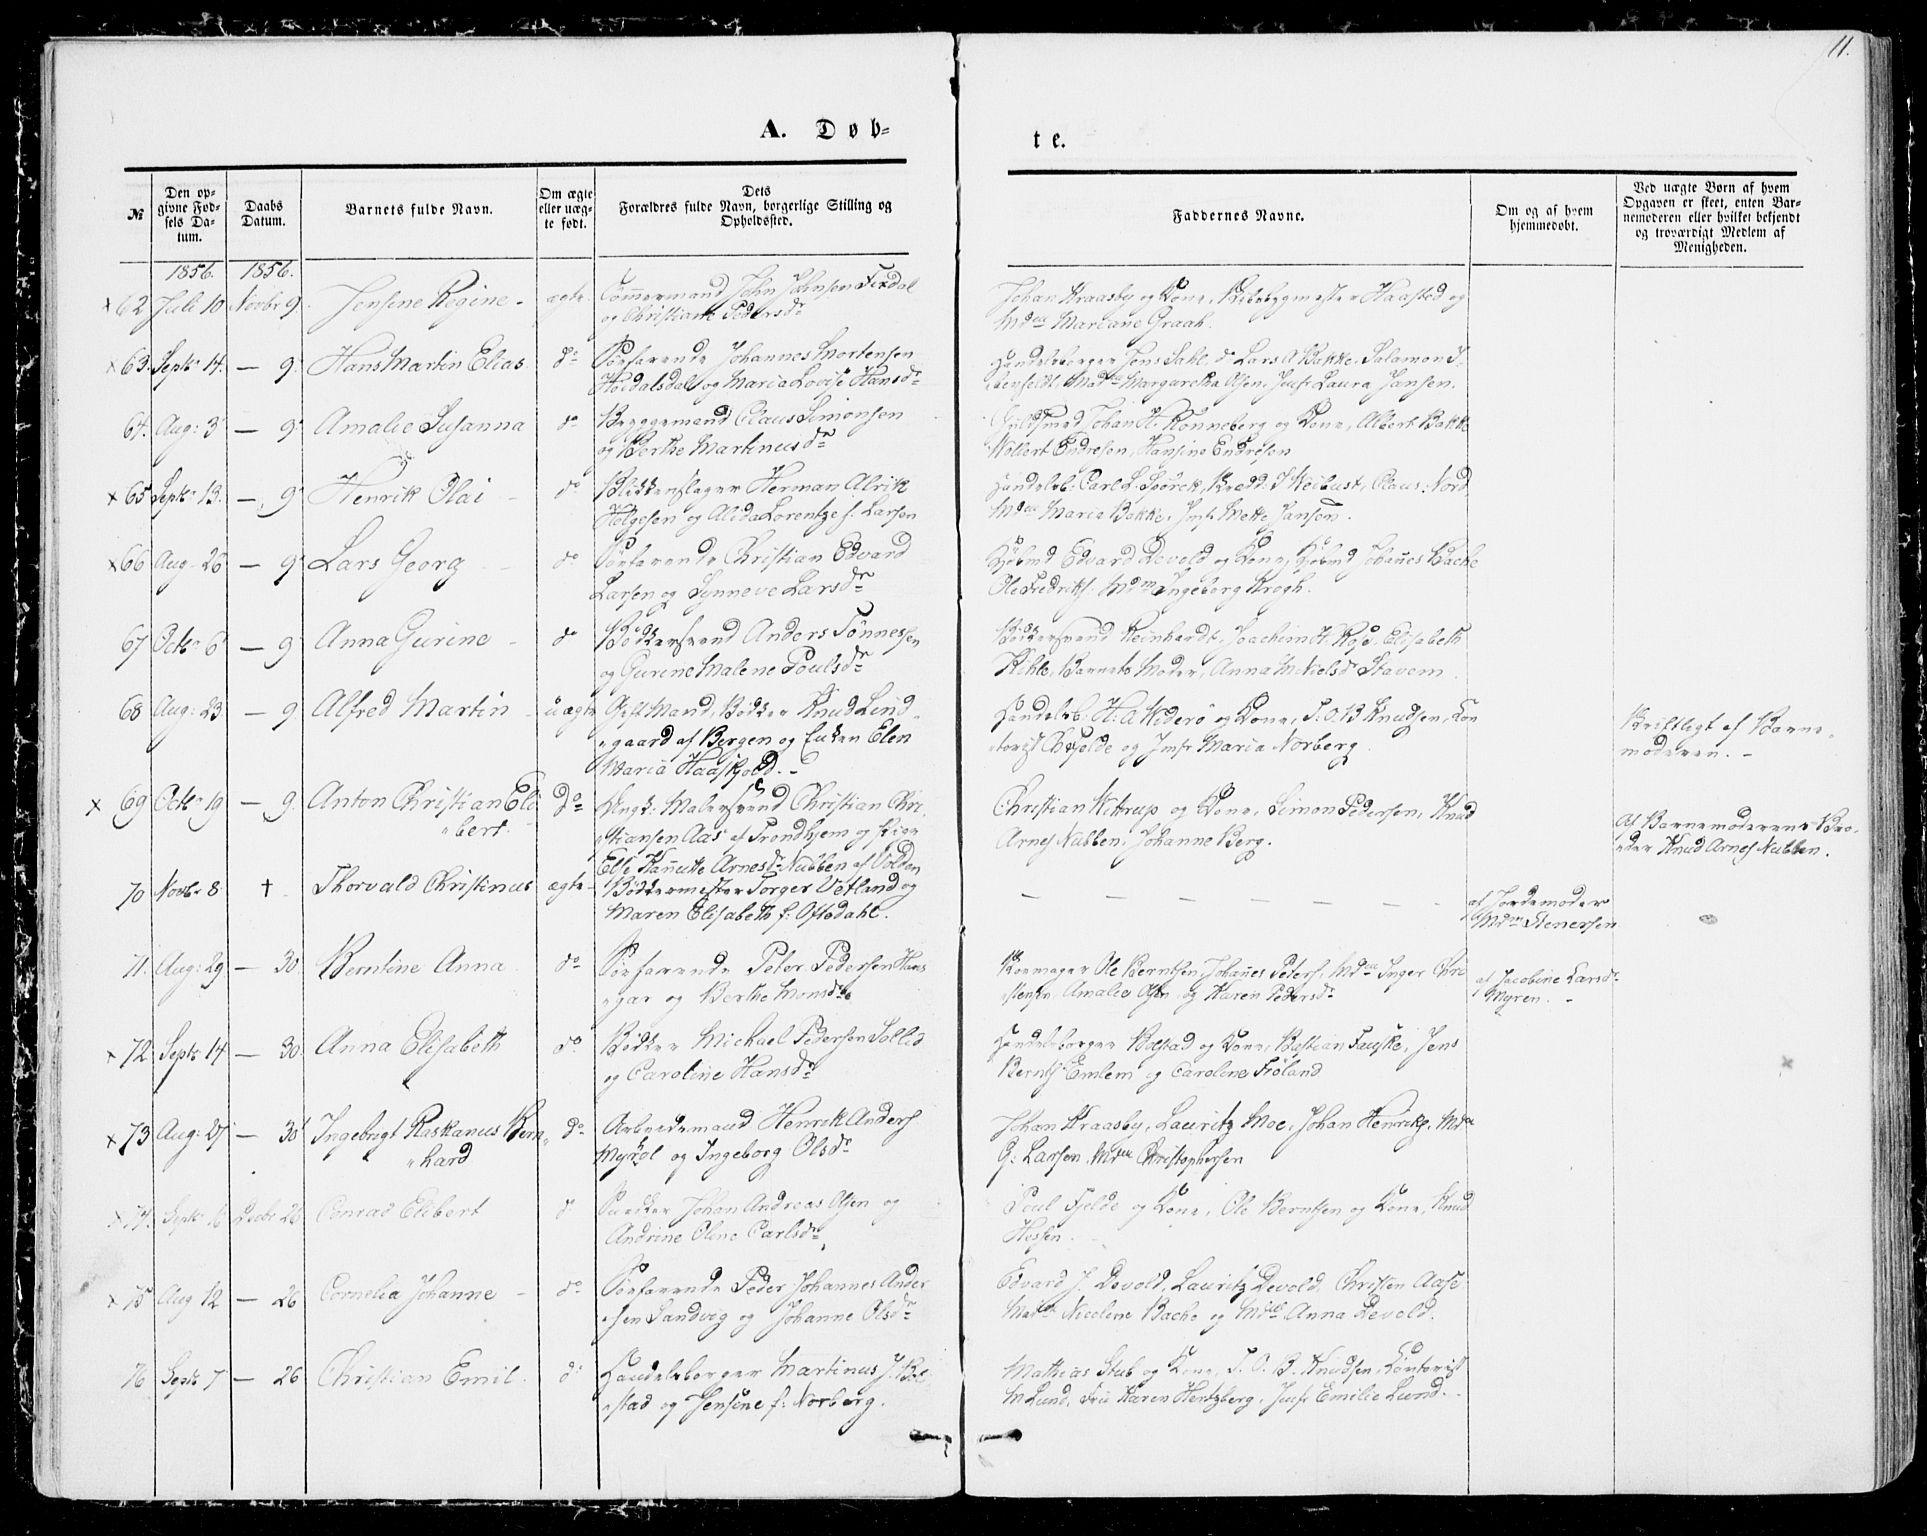 11.
A. Døb-
te.
№
Den op-
givne Fød-
sels Da-
tum.
Daabs
Datum.
Barnets fulde Navn.
Om ægte
eller uæg-
te født.
Dets
Forældres fulde Navn, borgerlige Stilling og
Opholdssted.
Faddernes Navne.
Om og af hvem
hjemmedøbt.
Ved uægte Børn af hvem
Opgaven er skeet, enten Bar-
nemoderen eller hvilket bekjendt
og troværdigt Medlem af
Menigheden.
1856. 1856.
x 62 Juli 10 Novbr 9. Jensine Regine - ægte Tømmermand John Johnsen Fixdal
og Christiane Pedersdr
Johan Kraasby og Kone, Haasted og
Mdm Mariane Graah.
x 63. Septr 14. — 9. Hans Martin Elias do Søfarende Johannes Mortensen
Hoidalsdal og Maria Lovise Hansdr
Handelsborger Jens Dahl, do Lars A. Bakke, Salamon I-
Mdm Margaretha Olsen, Jmfr Laura Jansen.
64. Aug: 3 — 9. Amalie Susanna do Bryggemand Claus Simonsen
og Berthe Martinusdr
Guldsmed Johan H. Rønneberg og Kone, Albert Bakke
Wollert Endresen, Hansine Endresen
x 65 Septr 13. — 9 Henrik Olai - do Blikkenslager Herman Alrik
Helgesen og Alida Lorentze f. Larsen
Handelsb: Carl L. Claus Nord
Mdm Maria Bakke, Jmfr Mette Jansen.
x 66 Aug. 26 — 9 Lars Georg - do Søfarende Christian Edvard
Larsen og Synneve Larsdr
Kjøbmd Edvard Devold og Kone, Kjøbmd Johannes Bache
Ole Fredriks. Mdm Ingeborg Krogh.
67 Octbr 6 — 9 Anna Gurine - do Bødkersvend Anders Tønnessen
og Gurine Malene Poulsdr
Bødkersvend Reinhardt, Joachim H. Rose, Elisabeth
Kihle, Barnets Moder, Anna M. Nielsdr Stavem
68 Aug: 23 — 9 Alfred Martin - uægte Gift Mand, Bødker Knud Lind-
"gaard af Bergen og Enken Elen
Maria Haaskjold. -
Handelsb: H. A Widerø og Kone, T. O. B. Knudsen, Con
"torist Chr Fjelde og Jmfr Maria Norberg.
Skriftligt af Barne-
moderen. -
x 69 Octbr 19 — 9. Anton Christian Eli
"bert. do Ungk: Malersvend Christian Chri-
"stiansen Aas af Trondhjem og Pige
Else Hannikke Arnesdr Nubben af Volden
Christian Wittrup og Kone, Simon Pedersen, Knud
Arnes Nubben, Johanne Berg.
Af Barnemoderens Bro-
"der Knud Arnes Nubben.
70 Novbr 8 † Thorvald Christinus ægte - Bødkermester Torger Vetland og
Maren Elisabeth f: Oftedahl.
— — — — — — —
af Jordemoder
Mdm Stenersen
71. Aug: 29 — 30. Berntine Anna do Søfarende Peter Pedersen Hans
"gar og Berthe Monsdr
Skomager Ole Berntsen, Johannes Peters, Mdm Inger Chri
"stensen, Amalie Olsen og Karen Pedersdr
af Jacobine Larsdr
Myren. -
x 72 Septr 14 — 30 Anna Elisabeth do Bødker Michael Pedersen Sollid
og Caroline Hansdr
Handelsborger Bolstad og Kone, Bastian Fauske, Jens
Bernts Emlem og Caroline Frøland
x 73 Aug: 27 — 30 Ingebrigt Raskanus Bern-
"hard do Arbeidsmand Henrik Anders
Myrol og Ingeborg Olsdr
Johan Kraasby, Lauritz Moe, Johan Henriks, Mdm
G: Larsen, Mdm Christophersen
x 74. Septr 16 Decbr 26 Conrad Elibert d Snedker Johan Andreas Olsen og
Andrine Oline Carlsdr
Poul Fjelde og Kone, Ole Berntsen og Kone, Knud
Hessen.
x 75 Aug 12 — 26 Cornelia Johanne - do Søfarende Peder Johannes Ander
"sen Sandvig og Johanne Olsdr
Edvard J. Devold, Lauritz Devold, Christen Aase
Mdm Nicoline Bache og Mdm Anna Devold.
76 Septr 7 — 26 Christian Emil. do Handelsborger Martinus J. Bol
"stad og Jensine f: Norberg.
Mathias Stub og Kone, T. O. B. Knudsen, Contorist
M Lund, Fru Karen Hertzberg, Jmfr Emilie Lund. -